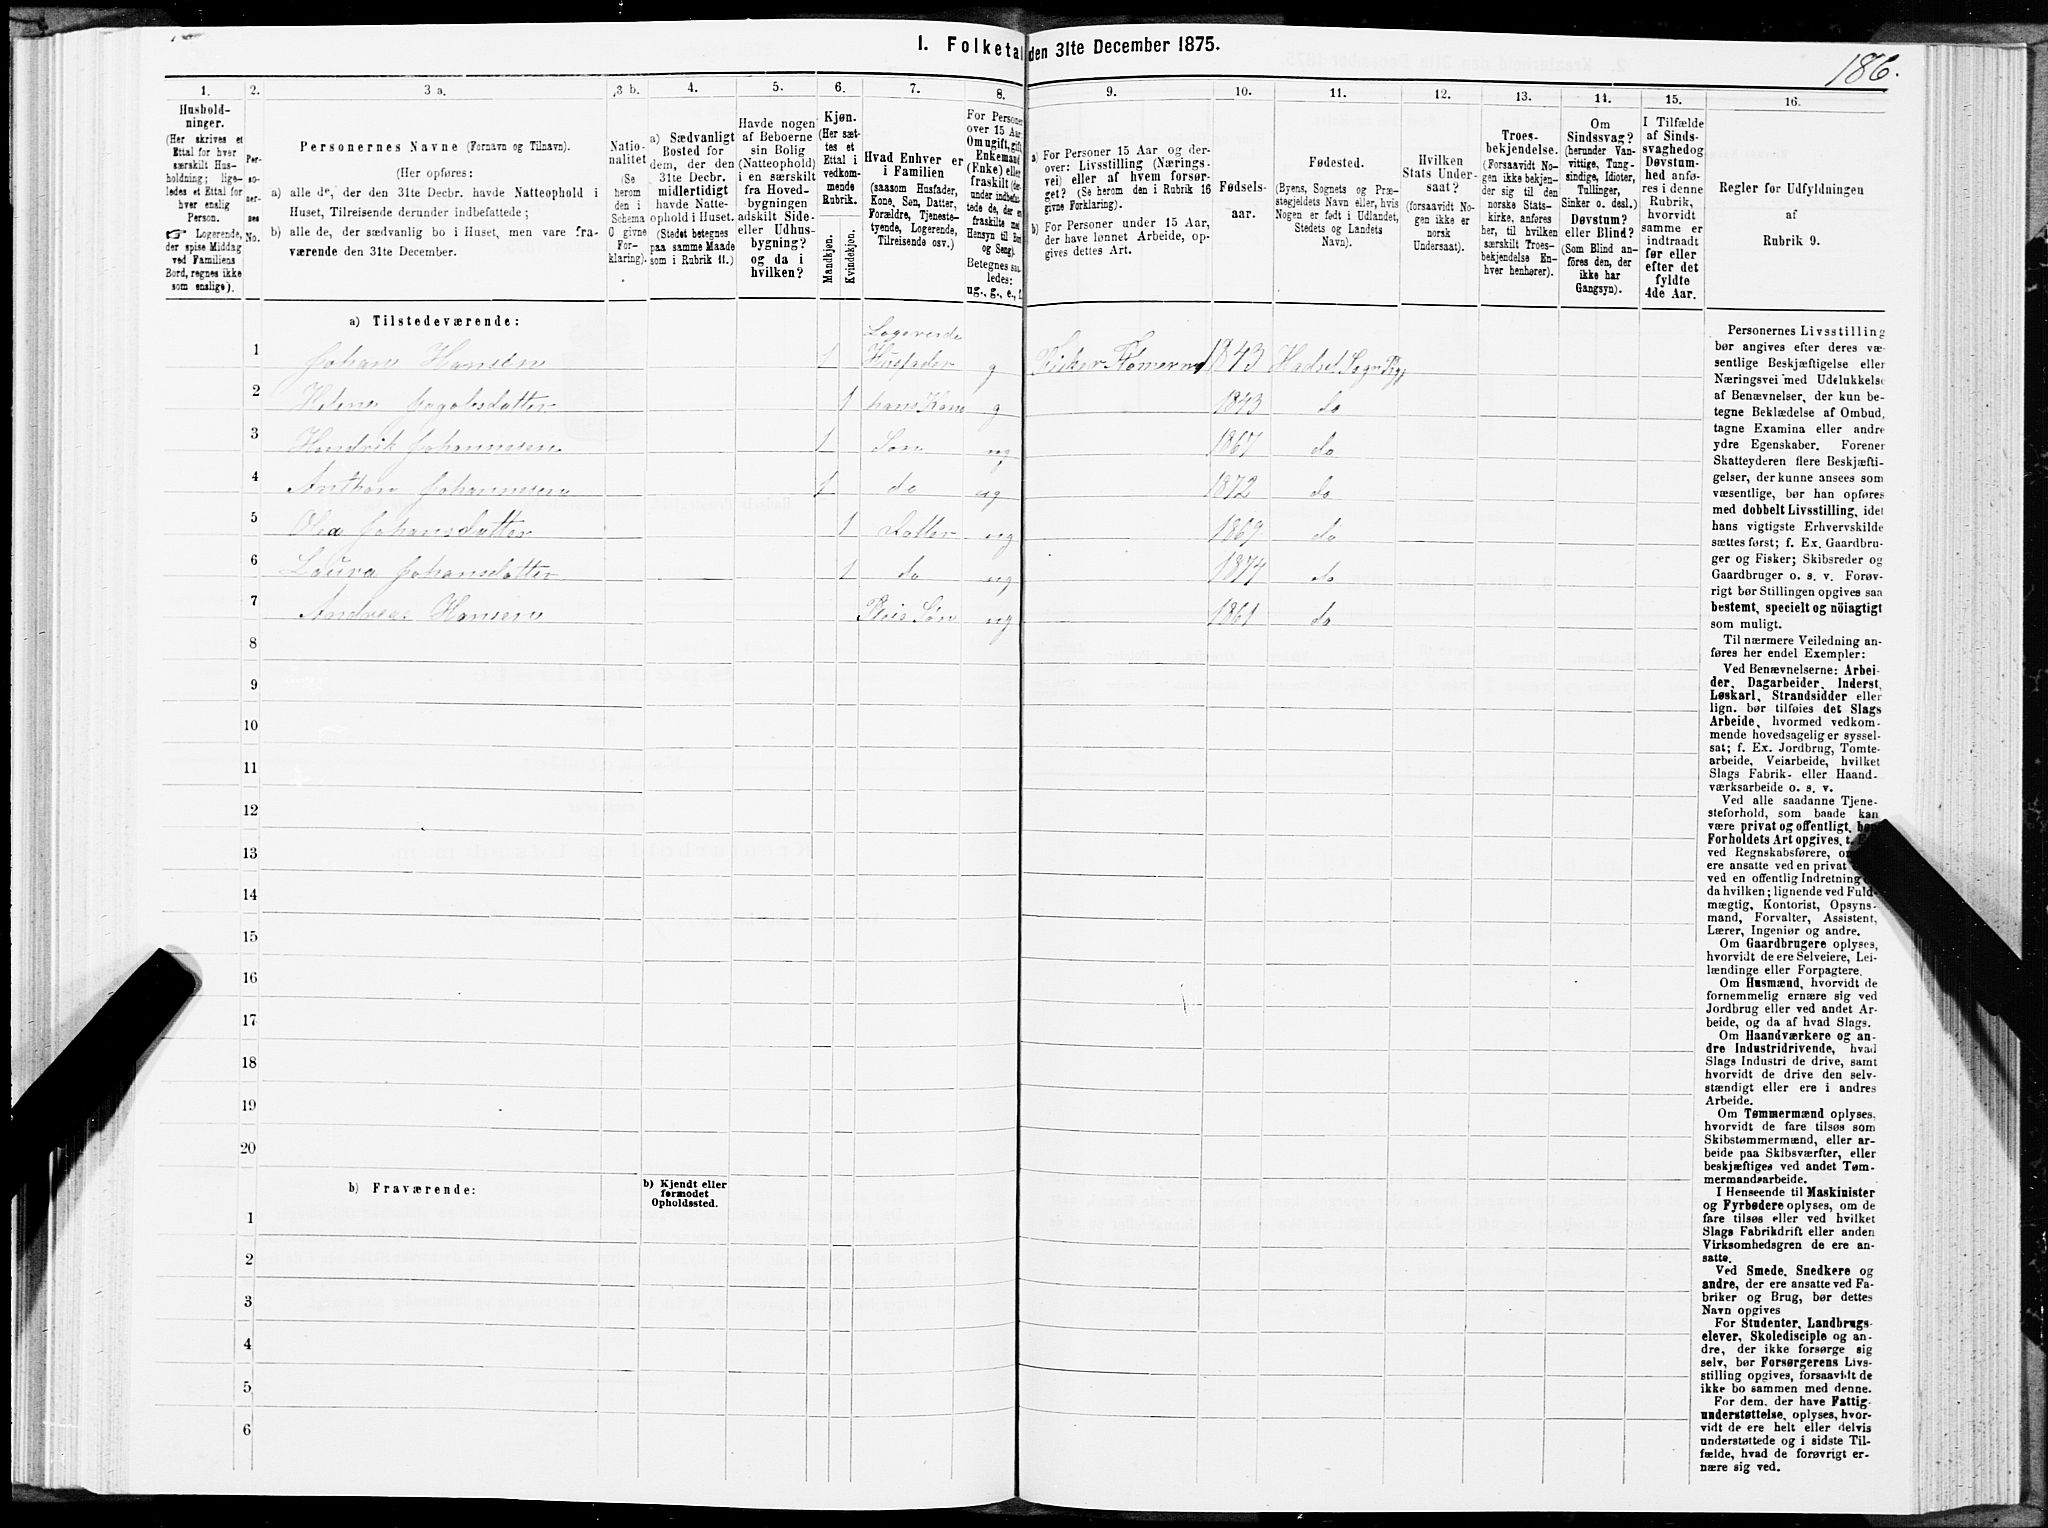 I. Folketal den 31te December 1875.
186.
1.
Hushold-
ninger.
(Her skrives et
Ettal for hver
særskilt Hus-
holdning; lige-
ledes et Ettal for
hver enslig
Person.
☞ Logerende,
der spise Middag
ved Familiens
Bord, regnes ikke
som enslige).
2.
Per-
so-
ner-
nes
No.
3 a.
Personernes Navne (Fornavn og Tilnavn).
(Her opføres:
a) alle de, der den 31te Decbr. havde Natteophold i
Huset, Tilreisende derunder indbefattede;
b) alle de, der sædvanlig bo i Huset, men vare fra-
værende den 31te December.
3 b.
Natio-
nalitet
(Se
herom
den i
Schema
O givne
For-
klaring).
4.
a) Sædvanligt
Bosted for
dem, der den
31te Decbr.
midlertidigt
havde Natte-
ophold i Huset.
(Stedet betegnes
paa samme Maade
som i Rubrik 11.)
5.
Havde nogen
af Beboerne
sin Bolig
(Natteophold)
i en særskilt
fra Hoved-
bygningen
adskilt Side-
eller Udhus-
bygning?
og da i
hvilken?
6.
Kjøn.
(Her sæt-
tes et
Ettal i
vedkom-
mende
Rubrik.
Mandkjøn.
Kvindekjøn.
7.
Hvad Enhver er
i Familien
(saasom Husfader,
Kone, Søn, Datter,
Forældre, Tjeneste-
tyende, Logerende,
Tilreisende osv.)
8.
For Personer
over 15 Aar:
Om ugift, gift,
Enkemand
(Enke) eller
fraskilt
Betegnes saa-
ledes:
ug., g., e., f.
9.
a) For Personer 15 Aar og der-
over: Livsstilling (Nærings-
vei) eller af hvem forsør-
get? (Se herom den i Rubrik 16
givne Forklaring).
b) For Personer under 15 Aar,
der have lønnet Arbeide, op-
gives dettes Art.
10.
Fødsels-
aar.
11.
Fødested.
(Byens, Sognets og Præ-
stegjeldets Navn eller, hvis
Nogen er født i Udlandet,
Stedets og Landets
Navn).
12.
Hvilken
Stats Under-
saat?
(forsaavidt No-
gen ikke er
norsk
Undersaat).
13.
Troes-
bekjendelse.
(Forsaavidt No-
gen ikke bekjen-
der sig til den
norske Stats-
kirke, anføres
her, til hvilken
særskilt Troes-
bekjendelse En-
hver henhører).
14.
Om
Sindssvag?
(herunder Van-
vittige, Tung-
sindige, Idioter,
Tullinger,
Sinker o. desl.)
Døvstum?
eller Blind?
(Som Blind an-
føres den, der
ikke har
Gangsyn).
15.
I Tilfælde
af Sinds-
svaghed og
Døvstum-
hed anfø-
res i denne
Rubrik,
hvorvidt
samme er
indtraadt
før eller
efter det
fyldte
4de Aar.
16.
Regler for Udfyldningen
af
Rubrik 9.
a) Tilstedeværende:
Logerende
1 Johan Hansen 1 Husfader g Fisker 1843 Hadsel Sogn
2 Helene Jagobsdatter 1 hans Kone g 1843 do
3 Hendrik Johannesen 1 Søn ug 1867 do
4 Anthon Johannesen 1 do ug 1872 do
5 Olea Johansdatter 1 Datter ug 1869 do
6 Laura Johansdatter 1 do ug 1874 do
7 Andreas Hansen Pleie Søn ug 1861 do
8
9
10
11
12
13
14
15
16
17
18
19
20
b) Fraværende:
b) Kjendt eller
formodet
Opholdssted.
1
2
3
4
5
6
Personernes Livsstilling
bør angives efter deres væ-
sentlige Beskjæftigelse eller
Næringsvei med Udelukkelse
af Benævnelser, der kun be-
tegne Beklædelse af Ombud,
tagne Examina eller andre
ydre Egenskaber. Forener
Skatteyderen flere Beskjæfti-
gelser, der kunne ansees som
væsentlige, bør han opføres
med dobbelt Livsstilling, idet
hans vigtigste Erhvervskilde
sættes først; f. Ex. Gaardbru-
ger og Fisker; Skibsreder og
Gaardbruger o. s. v. Forøv-
rigt bør Stillingen opgives saa
bestemt, specielt og nöiagtigt
som muligt.
Til nærmere Veiledning an-
føres her endel Exempler:
Ved Benævnelserne: Arbei-
der, Dagarbeider, Inderst,
Løskarl, Strandsidder eller
lign. bør tilføies det Slags
Arbeide, hvormed vedkom-
mende hovedsagelig er syssel-
sat; f. Ex. Jordbrug, Tomte-
arbeide, Veiarbeide, hvilket
Slags Fabrik- eller Haand-
værksarbeide o. s. v.
Ved alle saadanne Tjene-
steforhold, som baade kan
være privat og offentligt, bør
Forholdets Art opgives, t.
ved Regnskabsførere, om
ere ansatte ved en privat
ved en offentlig Indretning
da hvilken; lignende ved Fuld-
mægtig, Kontorist, Opsyns-
mand, Forvalter, Assistent,
Lærer, Ingeniør og andre.
Om Gaardbrugere oplyses,
hvorvidt de ere Selveiere, Lei-
lændinge eller Forpagtere.
Om Husmænd, hvorvidt de
fornemmelig ernære sig ved
Jordbrug eller ved andet Ar-
beide, og da af hvad Slags.
Om Haandværkere og an-
dre Industridrivende, hvad
Slags Industri de drive, samt
hvorvidt de drive den selv-
stændigt eller ere i andres
Arbeide.
Om Tømmermænd oplyses,
hvorvidt de fare tilsøs som
Skibstømmermænd, eller ar-
beide paa Skibsværfter, eller
beskjæftiges ved andet Tøm-
mermandsarbeide.
I Henseende til Maskinister
og Fyrbødere oplyses, om de
fare tilsøs eller ved hvilket
Slags Fabrikdrift eller anden
Virksomhedsgren de ere an-
satte.
Ved Smede, Snedkere og
andre, der ere ansatte ved Fa-
briker og Brug, bør dettes
Navn opgives
For Studenter, Landbrugs-
elever, Skoledisciple og an-
dre, der ikke forsørge sig
selv, bør Forsørgerens Livs-
stilling opgives, forsaavidt de
ikke bo sammen med denne.
For dem, der have Fattig-
understøttelse, oplyses, hvor-
vidt de ere helt eller delvis
understøttede og i sidste Til-
fælde, hvad de forøvrigt er-
nære sig ved.